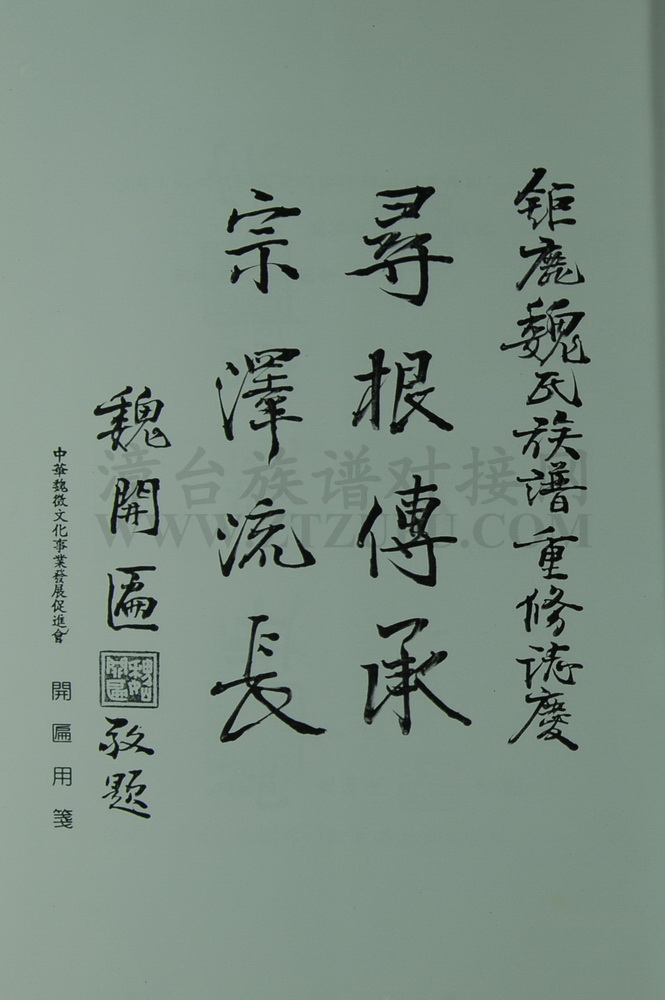 鉅鹿魏氏族譜重修誌慶
尋根傳承
宗澤流長
魏開匾 敬題
中華魏徵文化事業發展促進會 開匾用箋
漳台族谱对接网
WWW.ZTZUPU.COM